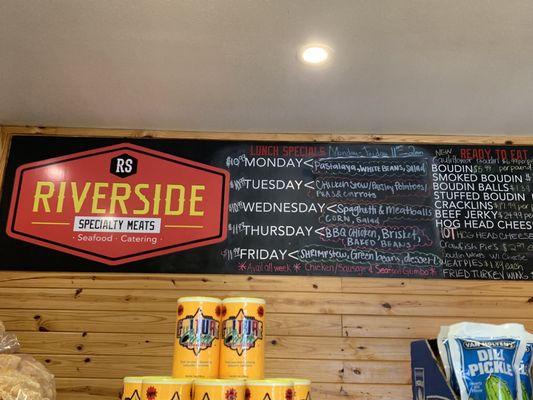 RS
RIVERSIDE
SPECIALTY MEATS
Seafood · Catering
LUNCH SPECIALS Monday-Friday 11-2
MONDAY < Pastalaya, White Beans, Salad
TUESDAY < Chicken Stew/Parsley Potatoes/
Peas & Carrots
WEDNESDAY < Spaghetti & Meatballs
CORN, Salad
THURSDAY < BBQ Chicken, Brisket,
BAKED BEANS
FRIDAY < Shrimp Stew, Green beans, dessert
*Avail all week * Chicken/Sausage & Seafood Gumbo*
READY TO EAT
NEW
Cauliflower Boudin
BOUDIN
SMOKED BOUDIN
BOUDIN BALLS
STUFFED BOUDIN
CRACKLINS
BEEF JERKY
HOG HEAD CHEESE
HOT HOG HEAD CHEESE
Crawfish Pies
MEAT PIES
FRIED TURKEY WING
VAN HOLTEN'S
DILL
PICKLE